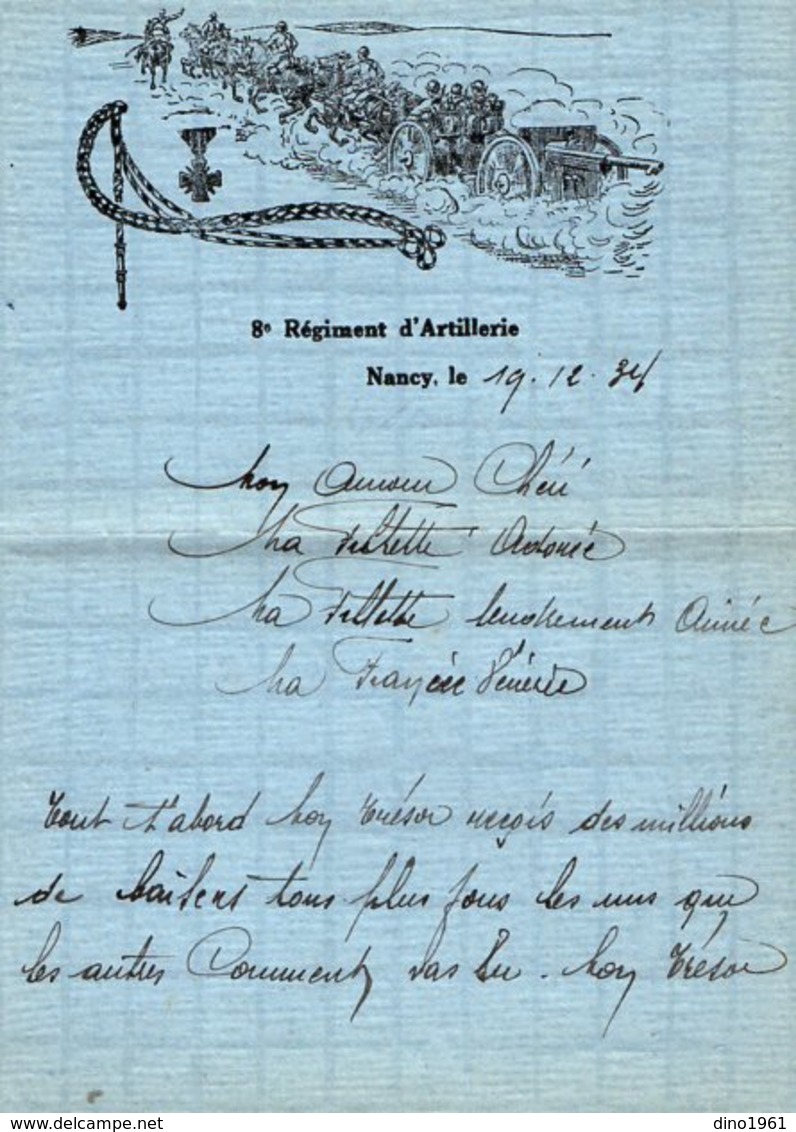 8e Régiment d'Artillerie
Nancy, le 19.12.34
Mon Amour Chéri
Ma Fillette Adorée
Ma Fillette tendrement Aimée
Ma Fiancée Vénérée
tout d'abord Mon Trésor reçois des millions
de baisers tous plus fous les uns que
les autres Comment vas tu. Mon Trésor
delcampe.net
dino1961